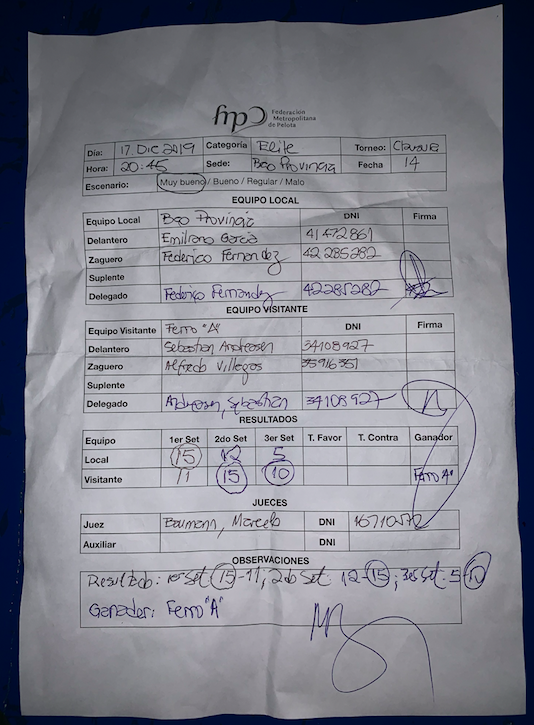 fmp Federación
Metropolitana
de Pelota
Día: 17 Dic 2019 Categoría Elite Torneo: Clausura
Hora: 20:45 Sede: Bco Provincia Fecha 14
Escenario: Muy bueno / Bueno / Regular / Malo
EQUIPO LOCAL
Equipo Local Bco Provincia DNI Firma
Delantero Emiliano Garcia 41472861
Zaguero Federico Fernandez 42285282
Suplente
Delegado Federico Fernandez 42285282
EQUIPO VISITANTE
Equipo Visitante Ferro "A" DNI Firma
Delantero Sebastian Andreasen 34108927
Zaguero Alfredo Villegas 35916351
Suplente
Delegado Andreasen, Sebastian 34108927
RESULTADOS
Equipo 1er Set 2do Set 3er Set T. Favor T. Contra Ganador
Local 15 12 5
Visitante 11 15 10 Ferro "A"
JUECES
Juez Baumann, Marcelo DNI
Auxiliar DNI
OBSERVACIONES
Resultado: 1er Set 15-11; 2do Set: 12-15; 3er Set: 5-10
Ganador: Ferro "A"